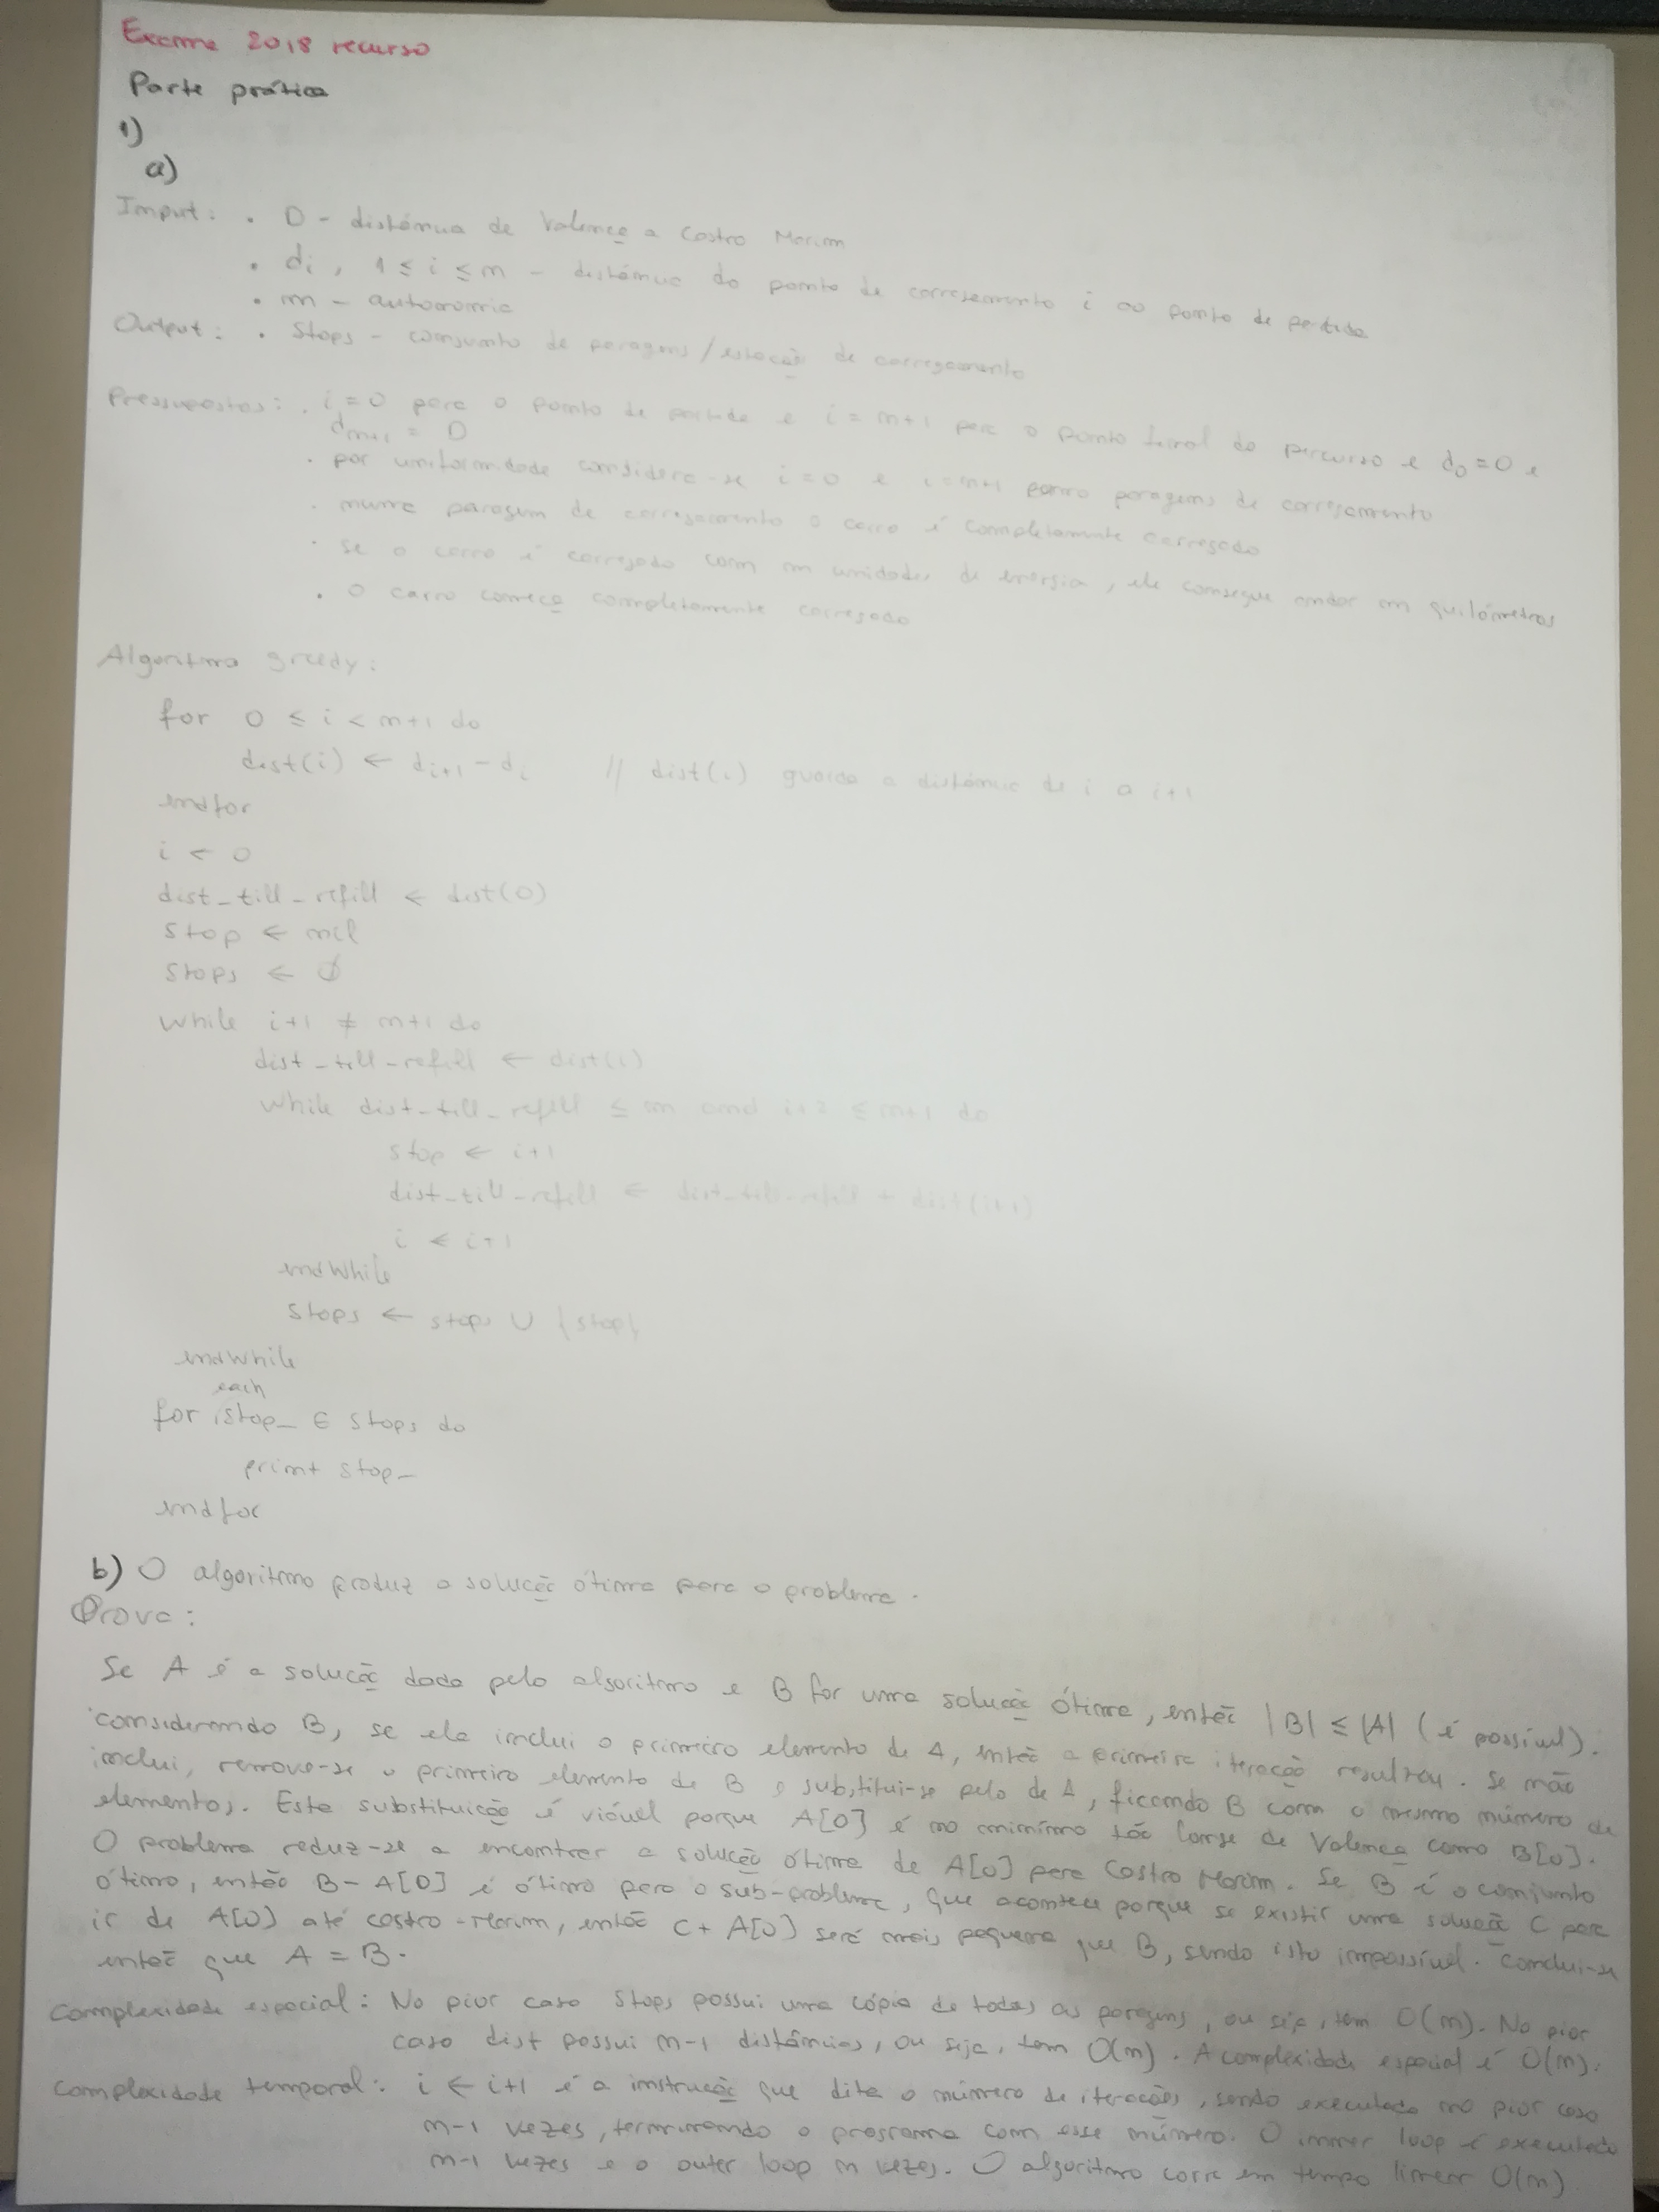 Exame 2018 recurso
Parte prática
1)
a)
Input: . D - distância de Valença a Castro Marim
. di, 1 ≤ i ≤ n - distância do ponto de carregamento i ao ponto de partida
. m - autonomia
Output: . Stops - conjunto de paragens/estação de carregamento
Pressupostos: . i=0 para o ponto de partida e i = n+1 para o ponto final do percurso e d0 = 0 e
dn+1 = D
. por uniformidade considera-se i=0 e i=n+1 como paragens de carregamento
. numa paragem de carregamento o carro é completamente carregado
. se o carro é carregado com m unidades de energia, ele consegue andar m quilómetros
. o carro começa completamente carregado
Algoritmo greedy:
for 0 ≤ i < n+1 do
dist(i) ← di+1 - di // dist(i) guarda a distância de i a i+1
endfor
i ← 0
dist_till_refill ← dist(0)
stop ← nil
stops ← ∅
while i+1 ≠ n+1 do
dist_till_refill ← dist(i)
while dist_till_refill ≤ m and i+2 ≤ n+1 do
stop ← i+1
dist_till_refill ← dist_till_refill + dist(i+1)
i ← i+1
endwhile
stops ← stops ∪ {stop}
endwhile
each
for stop_ ∈ stops do
print stop_
endfor
b) O algoritmo produz a solução ótima para o problema.
Prova:
Se A é a solução dada pelo algoritmo e B for uma solução ótima, então |B| ≤ |A| (é possível).
considerando B, se ela inclui o primeiro elemento de A, então a primeira iteração resultou. Se não
inclui, remove-se o primeiro elemento de B e substitui-se pelo de A, ficando B com o mesmo número de
elementos. Esta substituição é viável porque A[0] é no mínimo tão longe de Valença como B[0].
O problema reduz-se a encontrar a solução ótima de A[0] para Castro Marim. Se B é o conjunto
ótimo, então B-A[0] é ótimo para o sub-problema, que acontece porque se existir uma solução C para
ir de A[0] até castro-Marim, então C + A[0] será mais pequena que B, sendo isto impossível. Conclui-se
então que A = B.
Complexidade espacial: No pior caso Stops possui uma cópia de todas as paragens, ou seja, tem O(n). No pior
caso dist possui n-1 distâncias, ou seja, tem O(n). A complexidade espacial é O(n).
Complexidade temporal: i ← i+1 é a instrução que dita o número de iterações, sendo executado no pior caso
n-1 vezes, terminando o programa com esse número. O inner loop é executado
n-1 vezes e o outer loop n vezes. O algoritmo corre em tempo linear O(n)